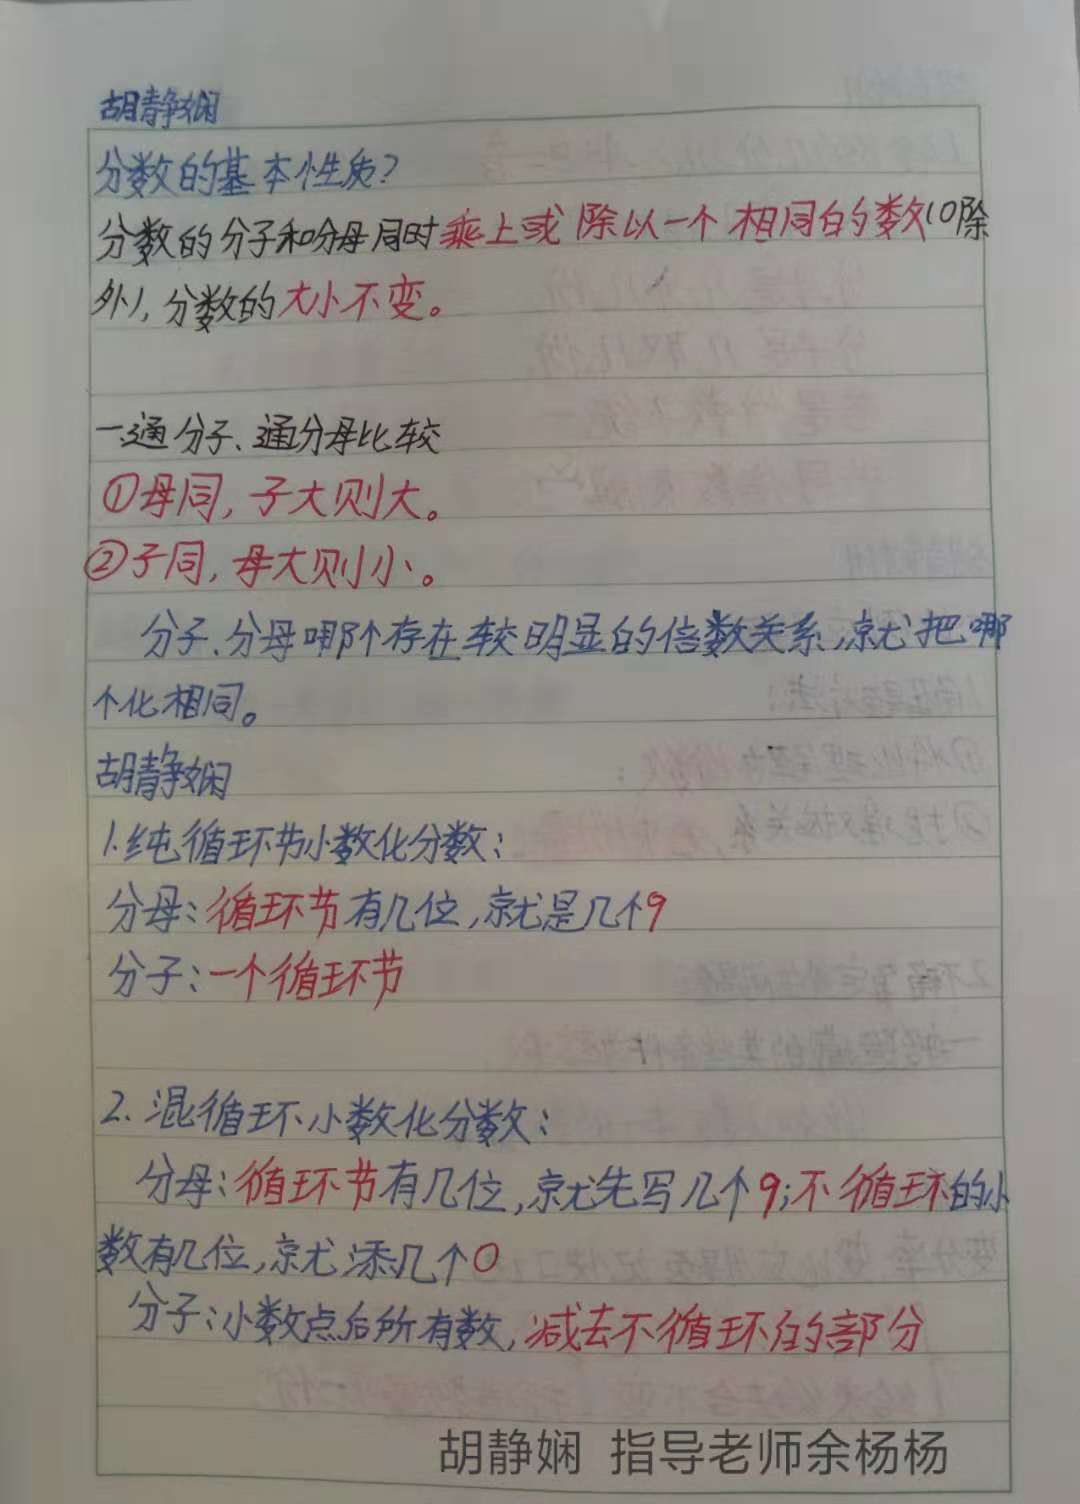 胡静娴
分数的基本性质?
分数的分子和分母同时乘上或除以一个相同的数(0除
外),分数的大小不变。
一.通分子、通分母比较
①母同,子大则大。
②子同,母大则小。
分子、分母哪个存在较明显的倍数关系,就把哪
个化相同。
胡静娴
1.纯循环节小数化分数:
分母:循环节有几位,就是几个9
分子:一个循环节
2.混循环小数化分数:
分母:循环节有几位,就先写几个9;不循环的小
数有几位,就添几个0
分子:小数点后所有数,减去不循环的部分
胡静娴 指导老师余杨杨